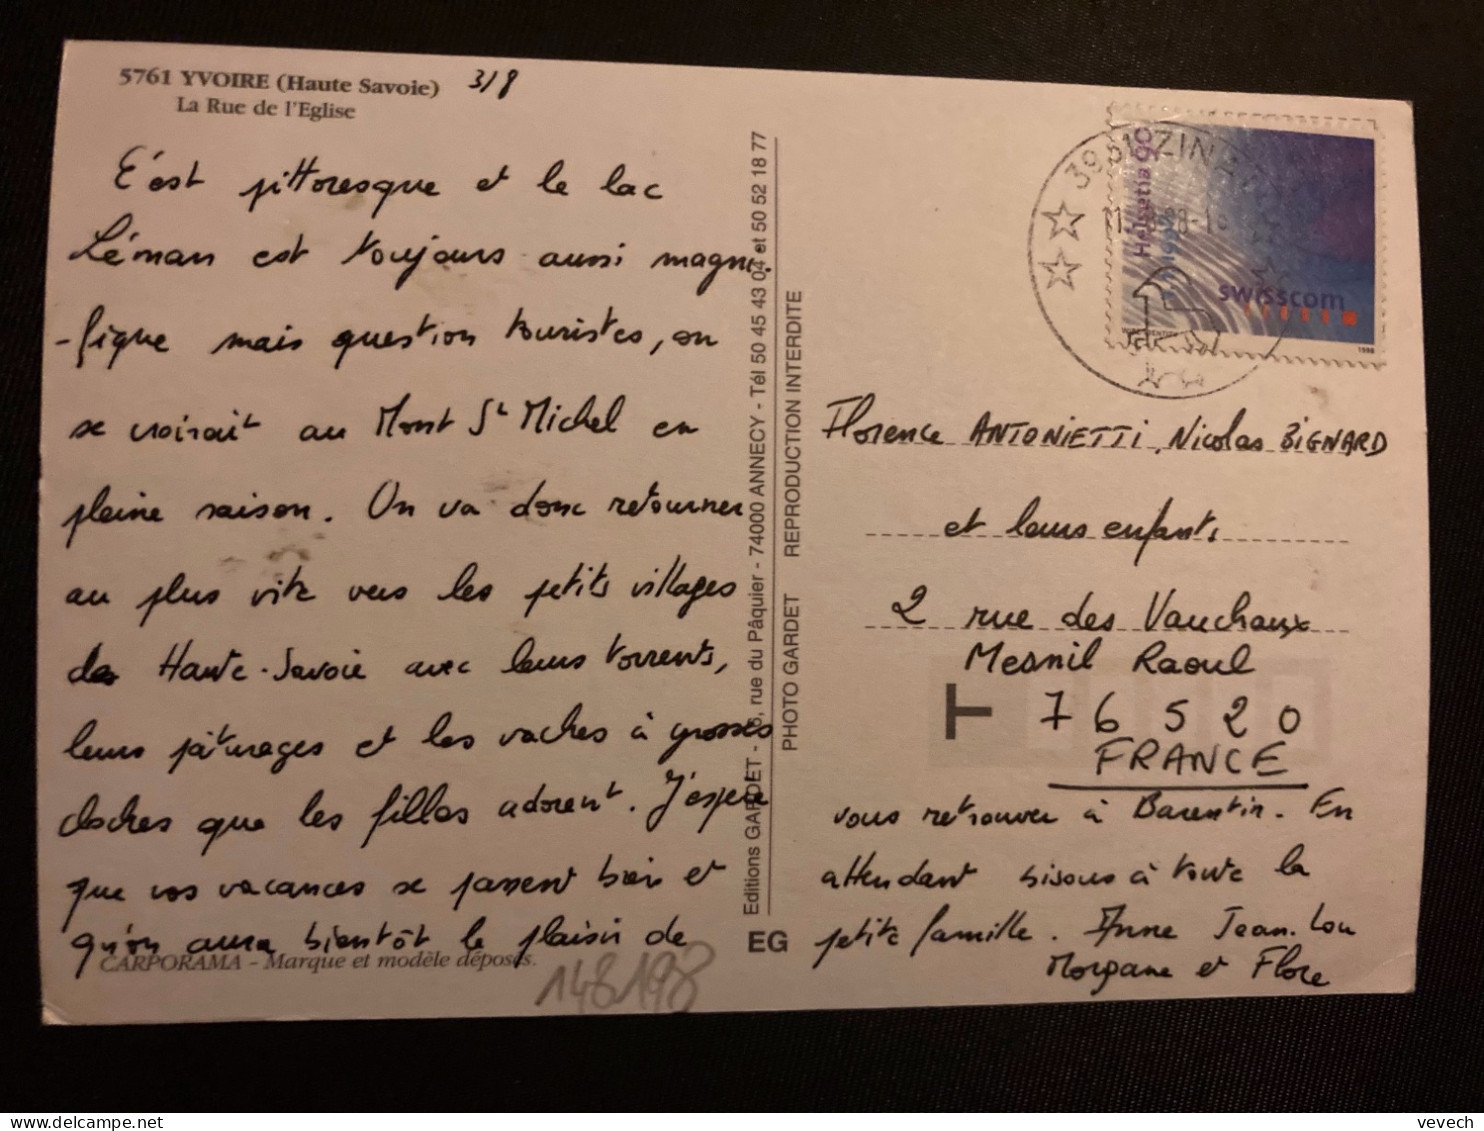 5761 YVOIRE (Haute Savoie) 3/8
La Rue de l'Eglise
C'est pittoresque et le lac
Léman est toujours aussi magni-
-fique mais question touristes, on
se croirait au Mont St Michel en
pleine saison. On va donc retourner
au plus vite vers les petits villages
de Haute-Savoie avec leurs torrents,
leurs pâturages et les vaches à grosses
cloches que les filles adorent. J'espère
que vos vacances se passent bien et
qu'on aura bientôt le plaisir de
CARPORAMA - Marque et modèle déposés.
148198
Editions GARDET - rue du Pâquier - 74000 ANNECY - Tél 50 45 43 04 et 50 52 18 77
PHOTO GARDET REPRODUCTION INTERDITE
EG
Helvetia 90
swisscom
1998
Florence ANTONIETTI, Nicolas BIGNARD
et leurs enfants
2 rue des Vauchaux
Mesnil Raoul
T 76520
FRANCE
vous retrouver à Barentin. En
attendant bisous à toute la
petite famille. Anne Jean-Lou
Morgane et Flore
vevech